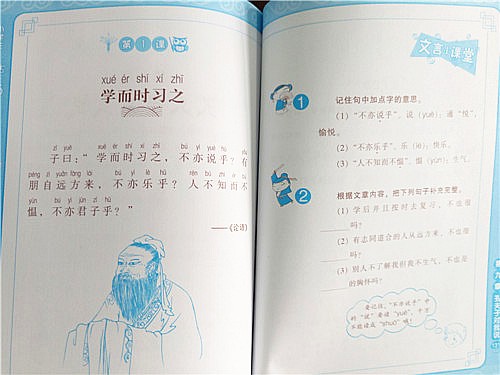 第1课
xué ér shí xí zhī
学而时习之
zǐ yuē xué ér shí xí zhī bú yì yuè hū yǒu
子曰：“学而时习之，不亦说乎？有
péng zì yuǎn fāng lái bú yì lè hū rén bù zhī ér bú
朋自远方来，不亦乐乎？人不知而不
yùn bú yì jūn zǐ hū
愠，不亦君子乎？”
——《论语》
文言课堂
1 记住句中加点字的意思。
(1)“不亦说乎”，说（yuè）：通“悦”，
愉悦。
(2)“不亦乐乎”，乐（lè）：快乐。
(3)“人不知而不愠”，愠（yùn）：生气。
2 根据文章内容，把下列句子补充完整。
(1) 学后并且按时去复习，不也很
吗？
(2) 有志同道合的人从远方来，不也很
吗？
(3) 别人不了解我但我不生气，不也是
的胸怀吗？
要记住，“不亦说乎”中
的“说”要读“yuè”，千万
不能读成“shuō”哦！